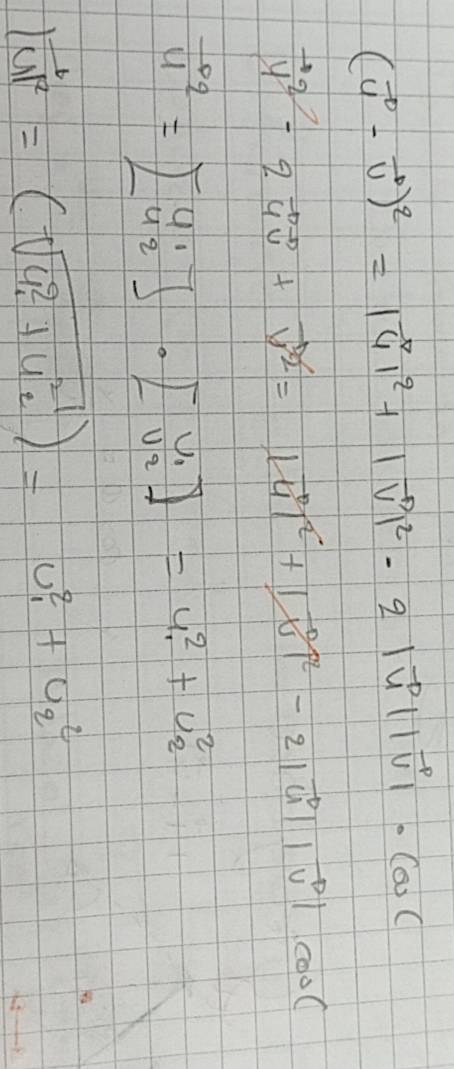 (u⃗ - v⃗)² = |u⃗|² + |v⃗|² - 2 |u⃗| |v⃗| · cos(
u⃗² - 2u⃗v⃗ + v⃗² = |u⃗|² + |v⃗|² - 2|u⃗| |v⃗| cos(
u⃗² = [u₁ u₂] · [u₁ u₂] = u₁² + u₂²
|u⃗|² = (√u₁² + u₂²) = u₁² + u₂²